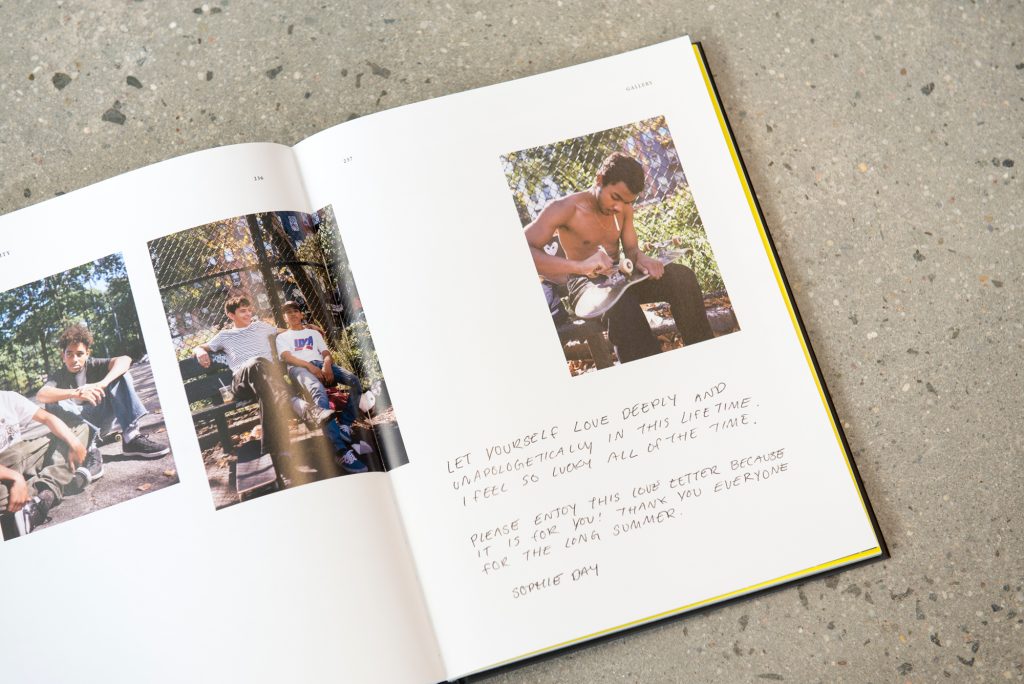 236
237
GALLERY
LET YOURSELF LOVE DEEPLY AND
UNAPOLOGETICALLY IN THIS LIFETIME.
I FEEL SO LUCKY ALL OF THE TIME.
PLEASE ENJOY THIS LOVE LETTER BECAUSE
IT IS FOR YOU! THANK YOU EVERYONE
FOR THE LONG SUMMER.
SOPHIE DAY